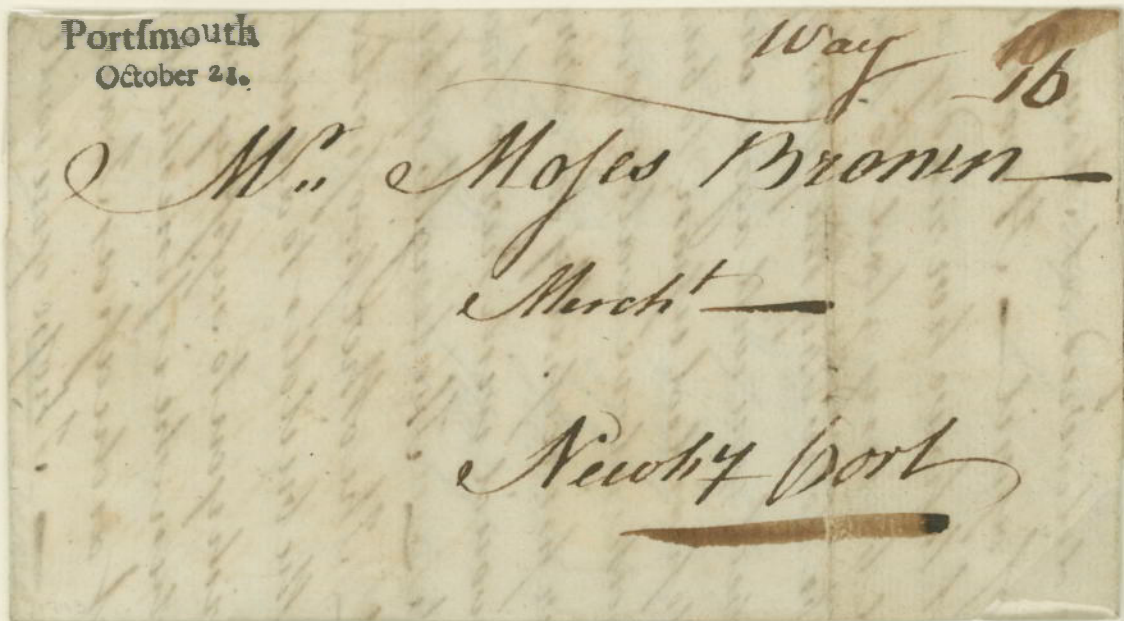 Portſmouth
October 21.
Way
16
Mr. Moſes Brown
Mercht
Newby Port